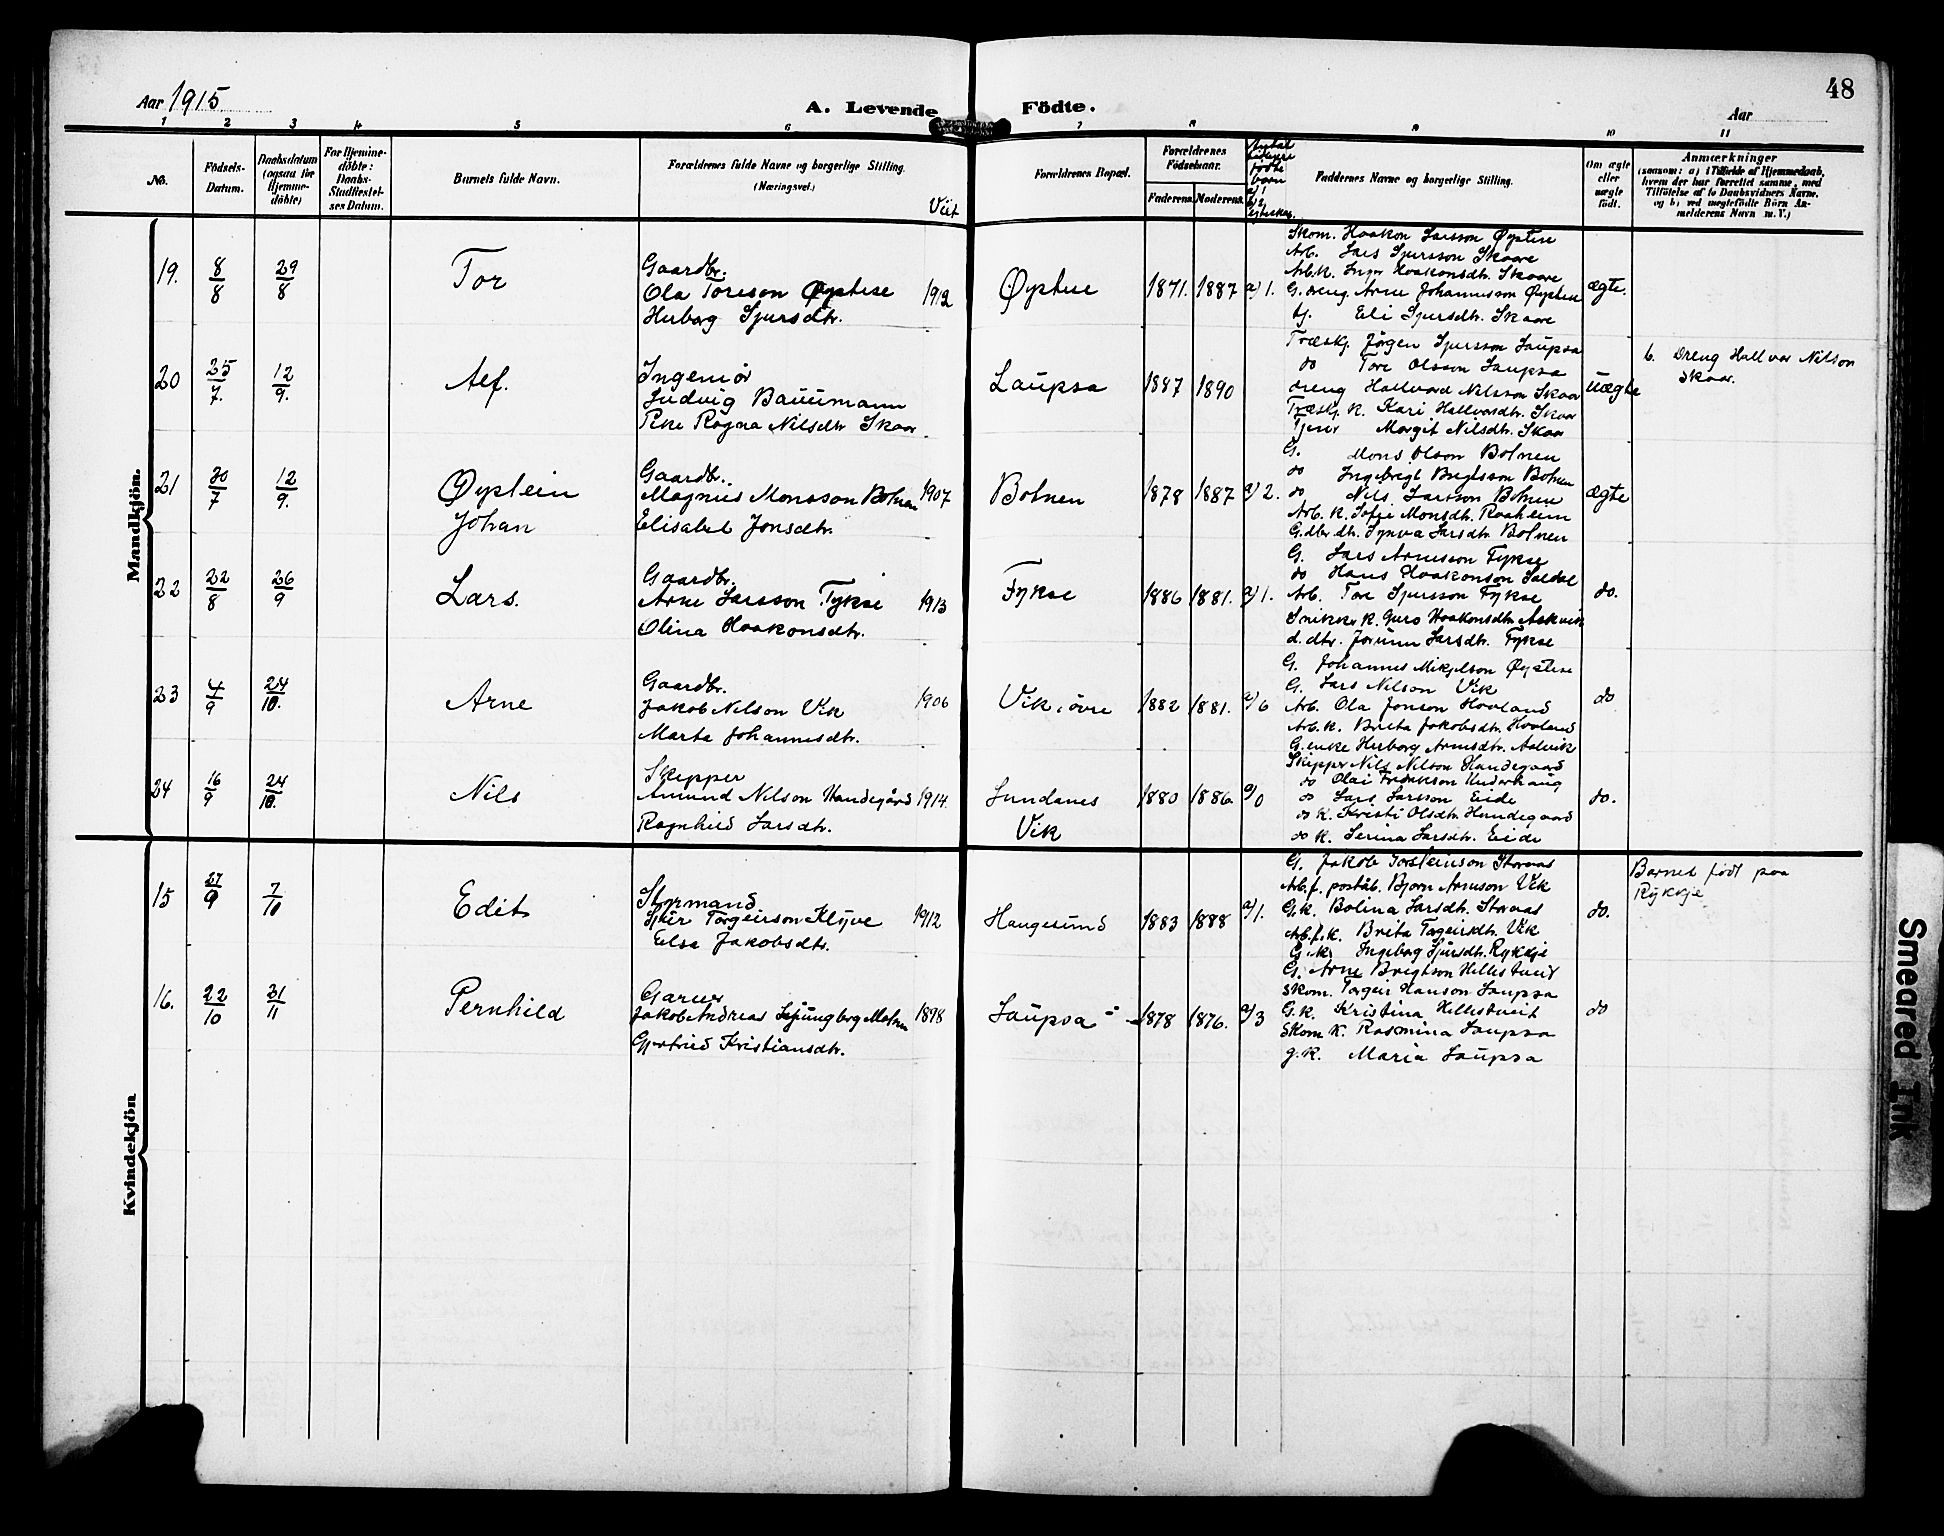 48
Aar 1915
A. Levende Födte.
Aar
1 2 3 4 5 6 7 8 9 10 11
No.
Födsels-Datum.
Daabsdatum (ogsaa for Hjemme-döbte)
For Hjemme-döbte: Daabs-Stadfæstel-ses Datum.
Barnets fulde Navn.
Forældrenes fulde Navne og borgerlige Stilling.
(Næringsvei.)
Viet
Forældrenes Bopæl.
Forældrenes Födselsaar.
Faderens. Moderens.
Antal
Faddernes Navne og borgerlige Stilling.
Om ægte eller uægte födt.
Anmærkninger
(saasom: a) i Tilfælde af Hjemmedaab,
hvem der har forrettet samme, med
Tilföielse af to Daabsvidners Navne,
og b) ved uægtefödte Börn An-
melderens Navn m. V.)
Mandkjön.
19. 8/8 29/8 Tor
Gaardbr.
Ola Toreson Øystese 1912
Herborg Sjursdtr.
Øystese 1871. 1887 a/1.
Skom. Haakon Larsson Øystese
Arb. Lars Sjursson Skaare
Arb.k. Inger Haakonsdtr. Skaare
G. dreng Arne Johannesson Øystese
tj. Eli Sjursdtr. Skaare
ægte.
20 25/7. 12/9. Alf.
Ingeniør
Ludvig Bauumann
Pike Ragna Nilsdtr Skaar
Laupsa 1887 1890
Træskj. Jörgen Sjursson Laupsa
do Tore Olsson Laupsa
dreng Hallvard Nilsson Skaar
Træskj. k. Kari Hallvardsdtr. Skaar
Tjener Margit Nilsdtr. Skaar
uægte
b. Dreng Hallvar Nilson
Skaar.
21 30/7 12/9. Øystein
Johan
Gaardbr.
Magnus Monsson Botnen 1907
Elisabet Jonsdtr.
Botnen 1878 1887 a/2.
G. Mons Olson Botnen
do Ingebrigt Brigtsson Botnen
do Nils Larsson Botnen
Arb. k. Sofie Monsdtr. Raaheim
G.dbr.dtr. Synva Larsdtr. Botnen
ægte
22 22/8 26/9 Lars.
Gaardbr.
Arne Larsson Fykse 1913
Olina Haakonsdtr.
Fykse 1886 1881. a/1.
G. Lars Arneson Fykse
do Hans Haakonson Soldal
Arb. Tore Sjursson Fykse
Snikker k. Guro Haakonsdtr Askvik
d. dtr. Jorunn Larsdtr. Fykse
do.
23 4/9 24/10. Arne
Gaardbr.
Jakob Nilson Vik 1906
Marta Johannesdtr.
Vik, øvre 1882 1881. a/6
G. Johannes Mikjelson Øystese
G. Lars Nilson Vik
Arb. Ola Jonson Hovland
Arb. k. Brita Jakobsdtr. Hovland
G.enke Herborg Arnesdtr. Aalvik
do
24 16/9 24/10. Nils
Skipper
Amund Nilson Handegård 1914.
Ragnhild Larsdtr.
Sundanes
Vik
1880 1886. a/0
Skipper Nils Nilson Handegaard
do Olai Fredrikson Underhaug
do Lars Larsson Eide
do k. Kristi Olsdtr. Handegaard
do k. Serina Larsdtr. Eide
do.
Kvindekjön
15 27/9 7/10 Edit
Styrmand
Sjur Torgeirson Klyve 1912
Elsa Jakobsdtr.
Haugesund 1883 1888 a/1.
G. Jakob Torsteinson Storaas
Arb.f. poståb. Bjorn Arneson Vik
G.k. Bolina Larsdtr. Storaas
Arb.f.k. Brita Torgeirsdtr. Vik
G.k. Ingeborg Sjursdtr. Rykkje
do.
Barnet født paa
Rykkje
16. 22/10 21/11 Pernhild
Garver
Jakob Andreas Ljungberg Malum 1898
Gjertrud Kristiansdtr.
Laupsa 1878 1876. a/3
G. Arne Brigtson Hillestveit
Skom. Torgeir Hanson Laupsa
G.k. Kristina Hillestveit
Skom. k. Rasmina Laupsa
g.k. Maria Laupsa
do
Smeared Ink